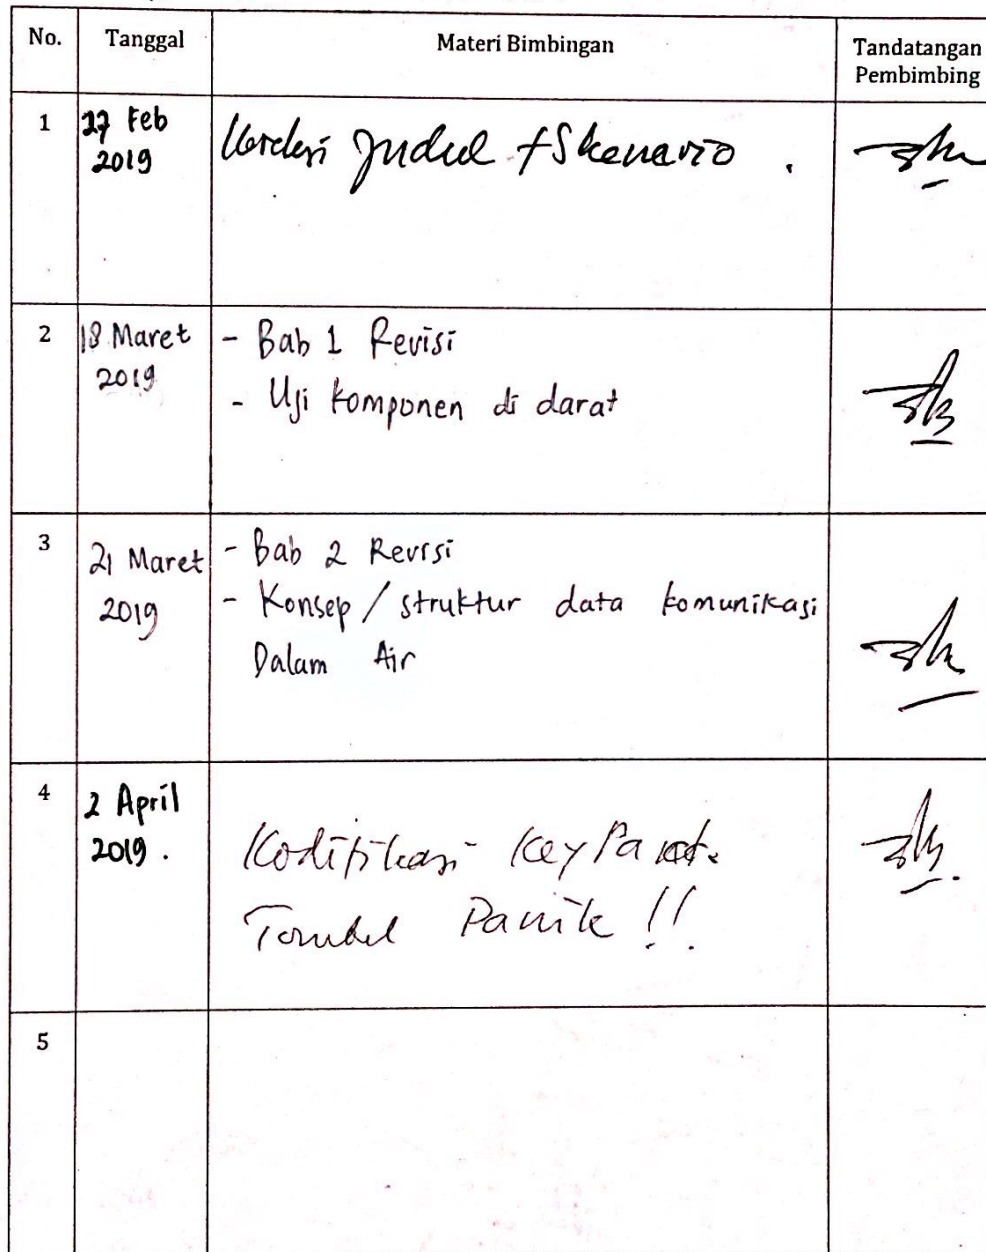 No. Tanggal Materi Bimbingan Tandatangan
Pembimbing
1 27 Feb
2019
Judul + Skenario .
2 18 Maret
2019
- Bab 1 Revisi
- Uji komponen di darat
3 21 Maret
2019
- Bab 2 Revisi
- Konsep / struktur data komunikasi
Dalam Air
4 2 April
2019 .
Kodifikasi Key
Panik !!
5